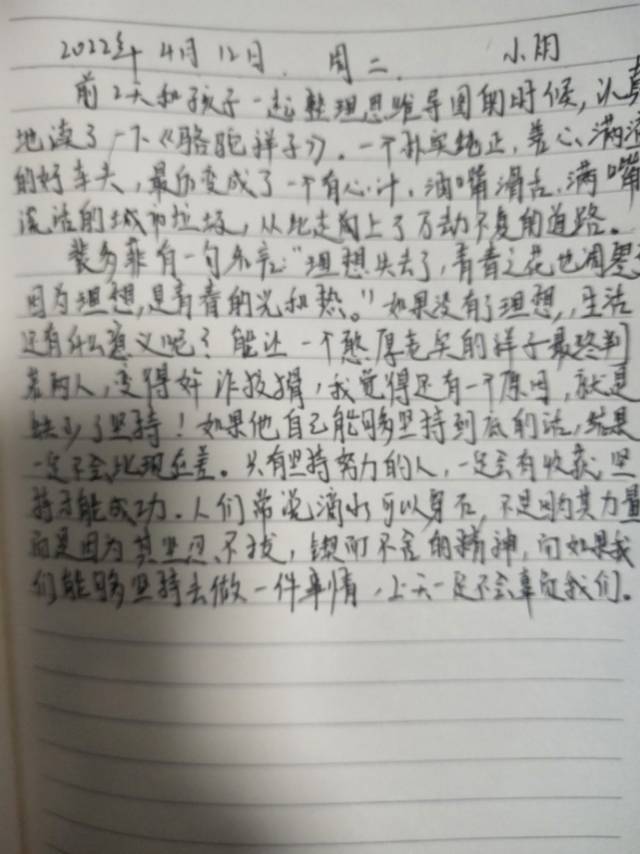 2022年 4月 12日. 周二. 小雨
前2天和孩子一起整理思维导图的时候,认真
地读了一下《骆驼祥子》。一个朴实纯正,善心满满
的好车夫,最后变成了一个有心计,油嘴滑舌,满嘴
谎话的城市垃圾,从此走向上了万劫不复的道路。
裴多菲有一句名言:“理想失去了,青春之花也凋零
因为理想,是青春的光和热。”如果没有了理想,生活
还有什么意义呢?能让一个憨厚老实的祥子最终判
若两人,变得奸诈狡猾,我觉得还有一个原因,就是
缺少了坚持!如果他自己能够坚持到底的话,结果
一定不会比现在差。只有坚持努力的人,一定会有收获,坚
持才能成功.人们常说滴水可以穿石,不是因为其力量
而是因为其坚忍不拔,锲而不舍的精神,而如果我
们能够坚持去做一件事情,上天一定不会辜负我们。